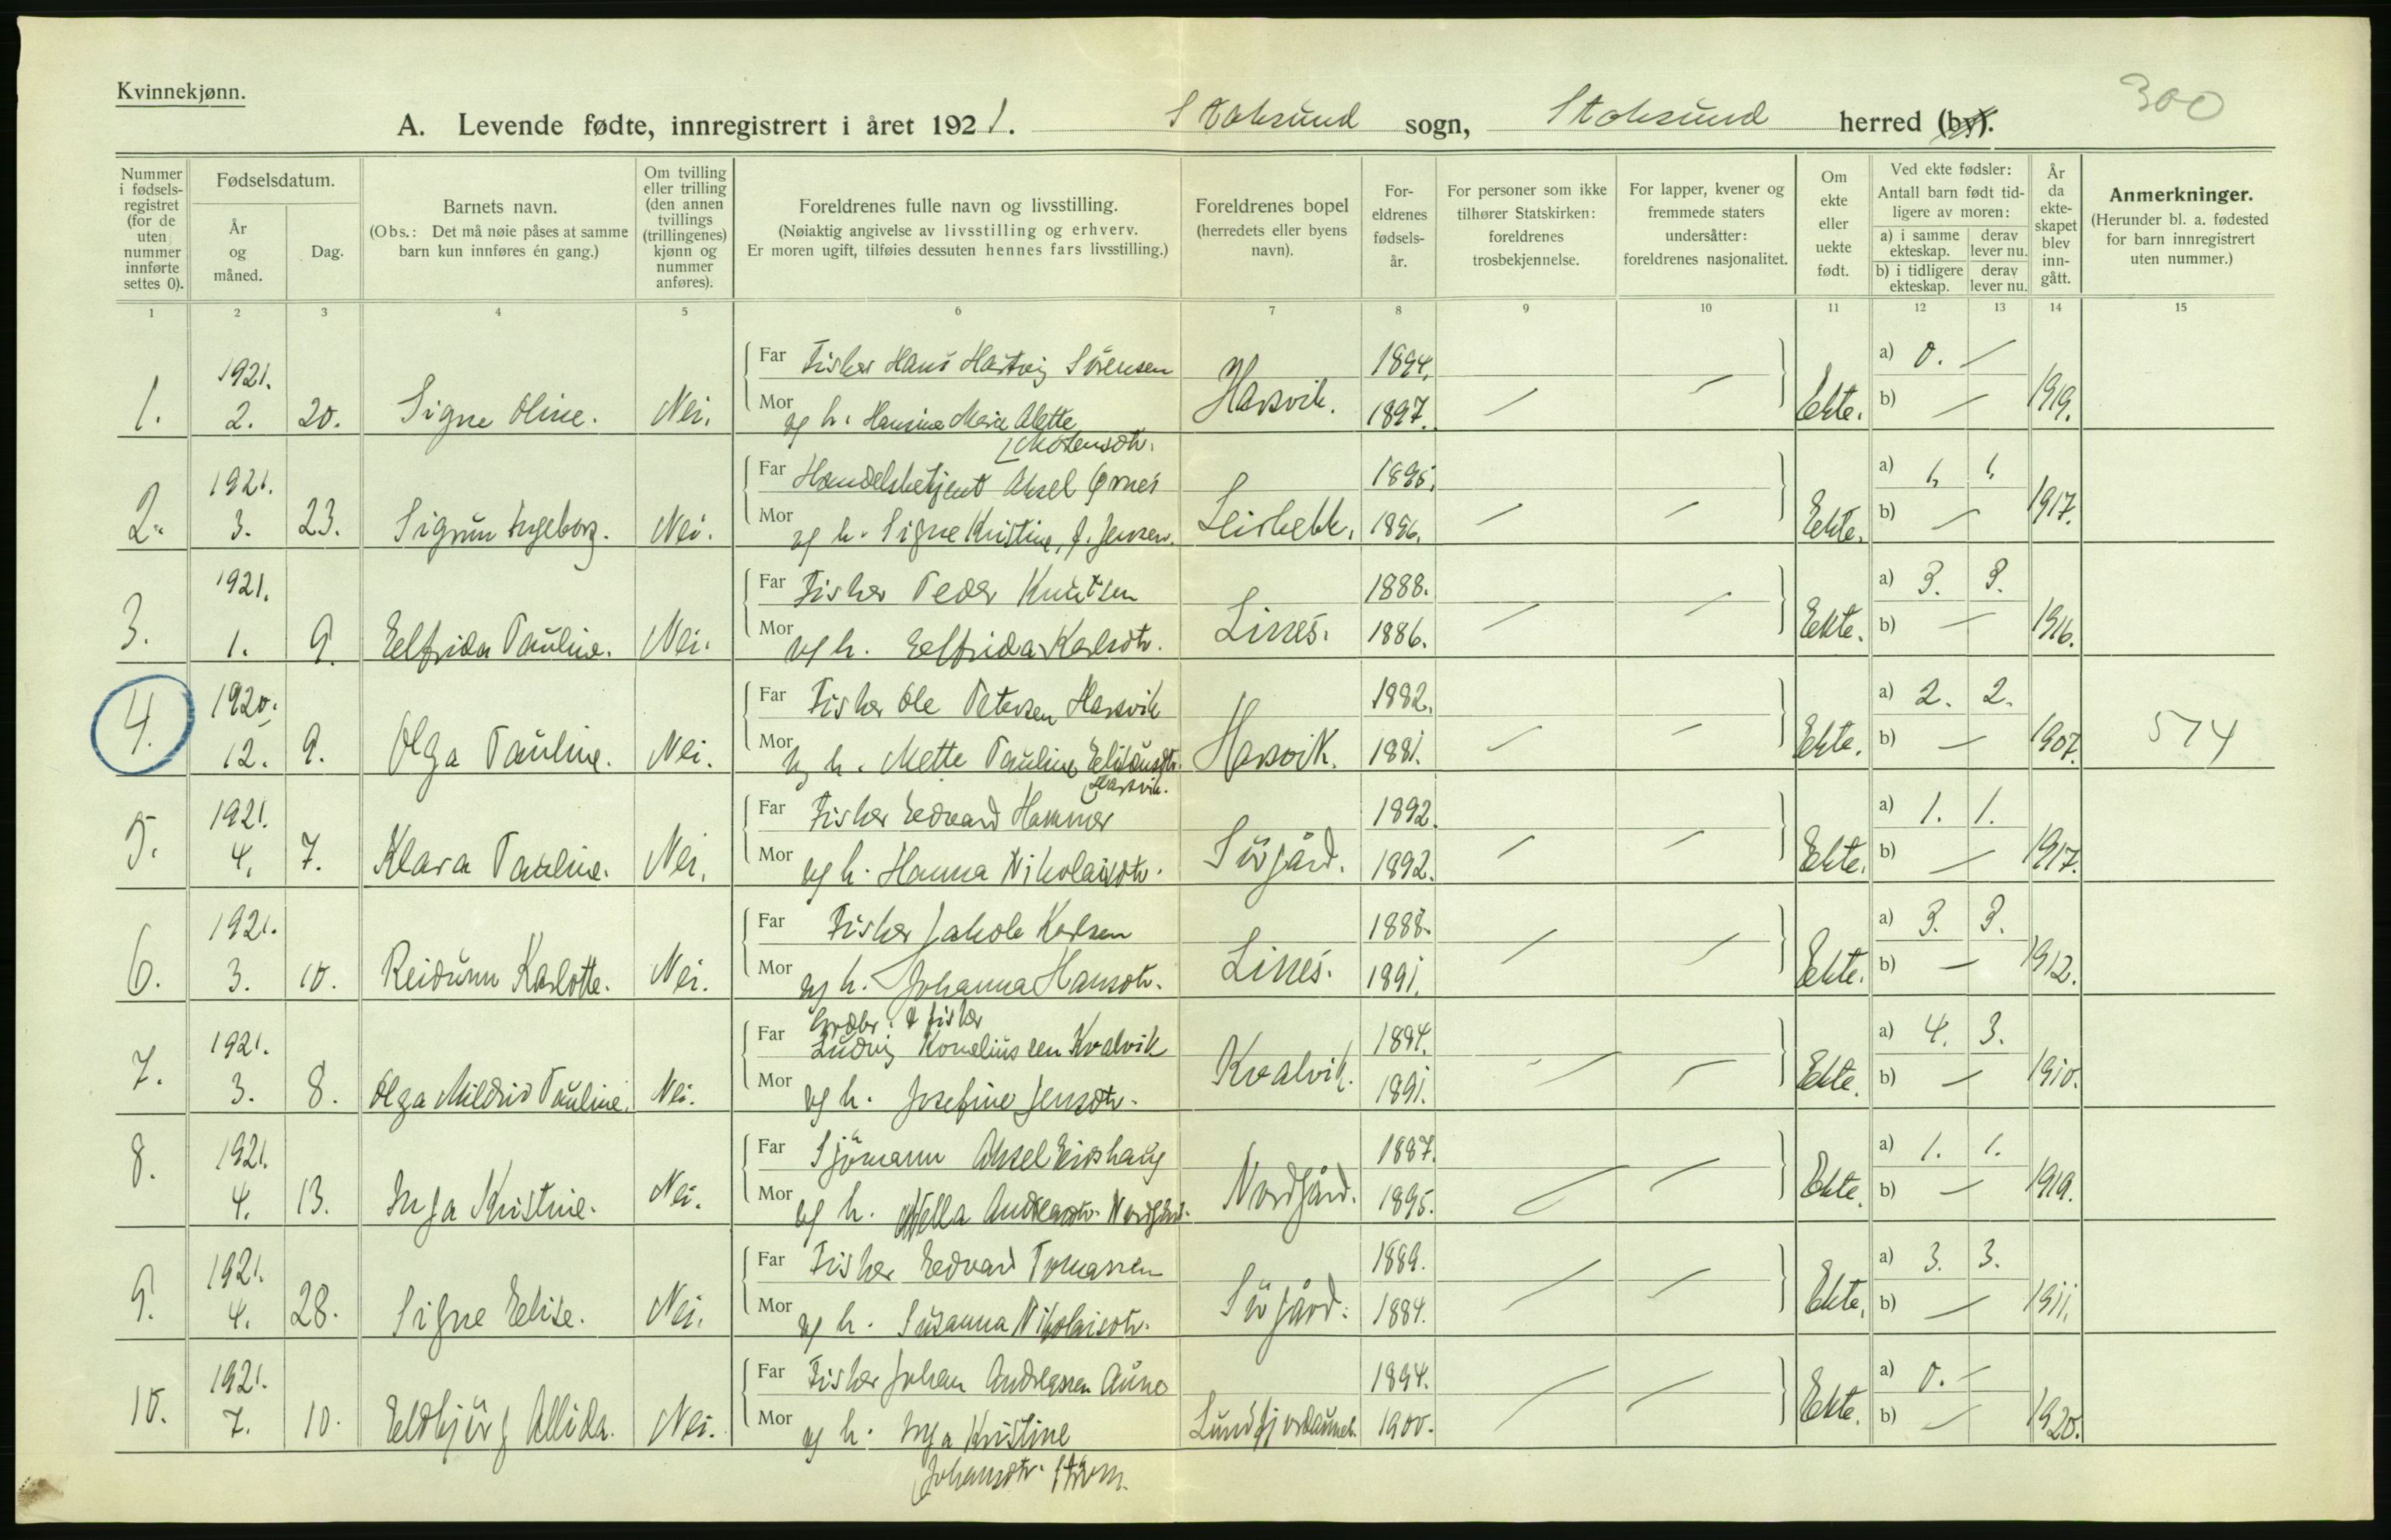 Kvinnekjønn.
300
A. Levende fødte, innregistrert i året 1921. Stoksund sogn, Stoksund herred (by).
Nummer i fødsels-registret (for de uten nummer innførte settes 0).
Fødselsdatum.
År og måned.
Dag.
Barnets navn.
(Obs.: Det må nøie påses at samme barn kun innføres én gang.)
Om tvilling eller trilling (den annen tvillings (trillingenes) kjønn og nummer anføres).
Foreldrenes fulle navn og livsstilling.
(Nøiaktig angivelse av livsstilling og erhverv.
Er moren ugift, tilføies dessuten hennes fars livsstilling.)
Foreldrenes bopel (herredets eller byens navn).
For-eldrenes fødsels-år.
For personer som ikke tilhører Statskirken: foreldrenes trosbekjennelse.
For lapper, kvener og fremmede staters undersåtter: foreldrenes nasjonalitet.
Om ekte eller uekte født.
Ved ekte fødsler: Antall barn født tid-ligere av moren:
a) i samme ekteskap. derav lever nu.
b) i tidligere ekteskap. derav lever nu.
År da ekte-skapet blev inn-gått.
Anmerkninger.
(Herunder bl. a. fødested for barn innregistrert uten nummer.)
1 2 3 4 5 6 7 8 9 10 11 12 13 14 15
1. 1921. 2. 20. Signe Oline. Nei.
Far Fisker Hans Hartvig Sørensen
Mor og h. Hansine Marie Alette Mortensdtr.
Harsvik. 1894. 1897. Ekte. a) 0. — b) — 1919.
2. 1921. 3. 23. Sigrun Ingeborg. Nei.
Far Handelsbetjent Aksel Ørnes
Mor og h. Signe Kristine, f. Jensen.
1895. 1896. Ekte. a) 1. 1. b) — 1917.
3. 1921. 1. 9. Elfrida Pauline. Nei.
Far Fisker Peder Knutsen
Mor og h. Elfrida Karlsdtr.
Lines. 1888. 1886. Ekte. a) 3. 3. b) — 1916.
4. 1920. 12. 9. Olga Pauline. Nei.
Far Fisker Ole Petersen Harsvik
Mor og h. Mette Pauline Harsvik.
Harsvik. 1882. 1881. Ekte. a) 2. 2. b) — 1907. 574
5. 1921. 4. 7. Klara Pauline. Nei.
Far Fisker Edvard Hammer
Mor og h. Hanna Nikolaisdtr.
Sørgård. 1892. 1892. Ekte. a) 1. 1. b) — 1917.
6. 1921. 3. 10. Reidunn Karlotte. Nei.
Far Fisker Jakob Karlsen
Mor og h. Johanna Hansdtr.
Lines. 1888. 1891. Ekte. a) 3. 3. b) — 1912.
7. 1921. 3. 8. Olga Mildrid Pauline. Nei.
Far Grdbr. & fisker Ludvig Korneliussen Kvalvik
Mor og h. Josefine Jensdtr.
Kvalvik. 1894. 1891. Ekte. a) 4. 3. b) — 1910.
8. 1921. 4. 13. Inga Kristine. Nei.
Far Sjömann Aksel
Mor og h. Andreasdtr. Nordgård.
Nordgård. 1887. 1895. Ekte. a) 1. 1. b) — 1919.
9. 1921. 4. 28. Signe Elise. Nei.
Far Fisker Edvard Tomassen
Mor og h. Susanna Nikolaisdtr.
Sørgård. 1889. 1884. Ekte. a) 3. 3. b) — 1911.
10. 1921. 7. 10. Eldbjørg Allida. Nei.
Far Fisker Johan Andreassen Aune
Mor og h. Inga Kristine Johansdtr. Strøm.
1894. 1900. Ekte. a) 0. — b) — 1920.